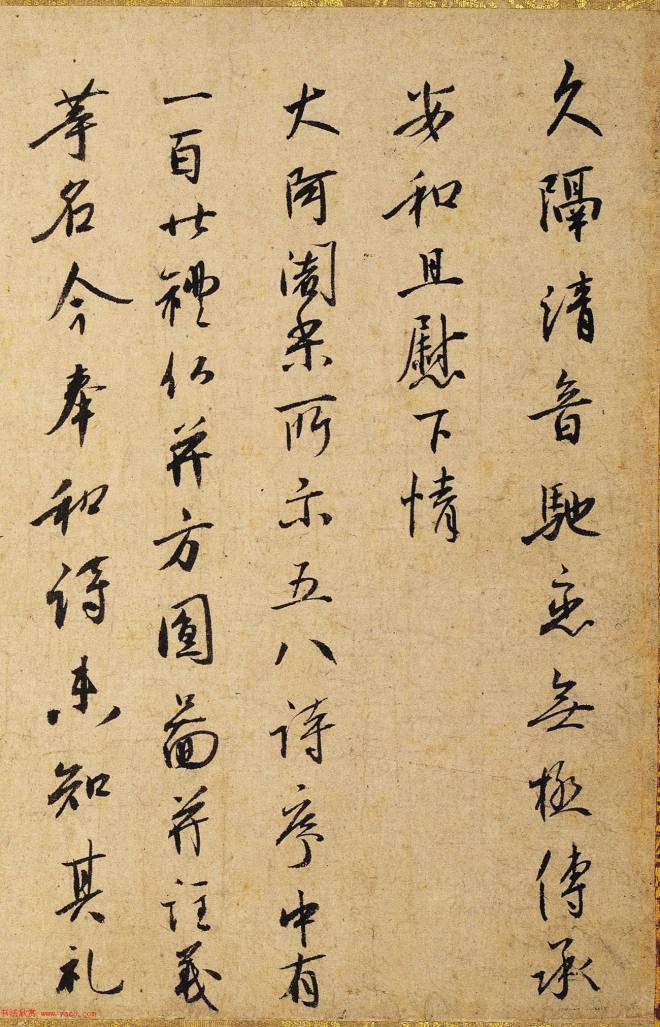 久隔清音馳恋無極傳承
安和且慰下情
大阿闍梨所示五八詩序中有
一百廿禮仏并方圓圖并註義
等名今奉和詩未知其礼
书法欣赏 www.yac8.com